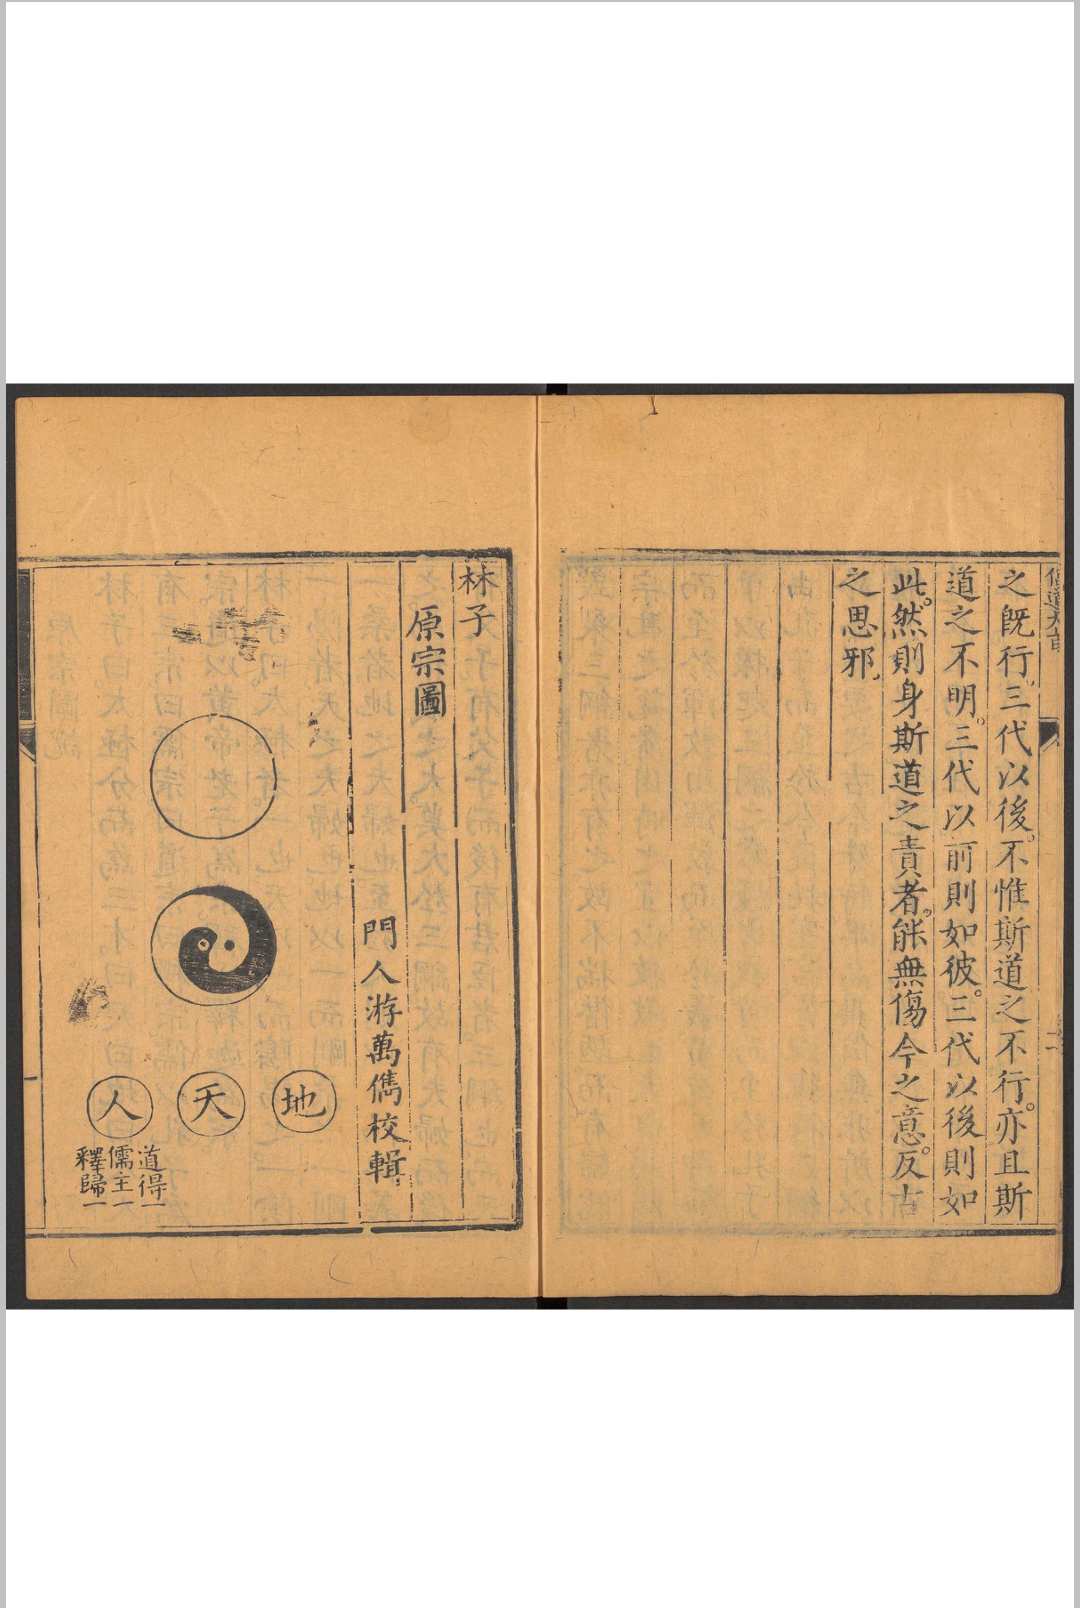 之旣行三代以後不惟斯道之不行亦且斯
道之不明三代以前則如彼三代以後則如
此然則身斯道之責者能無傷今之意反古
之思邪
林子
原宗圖
門人游萬儁校輯
地
天
人
道得一
儒主一
釋歸一